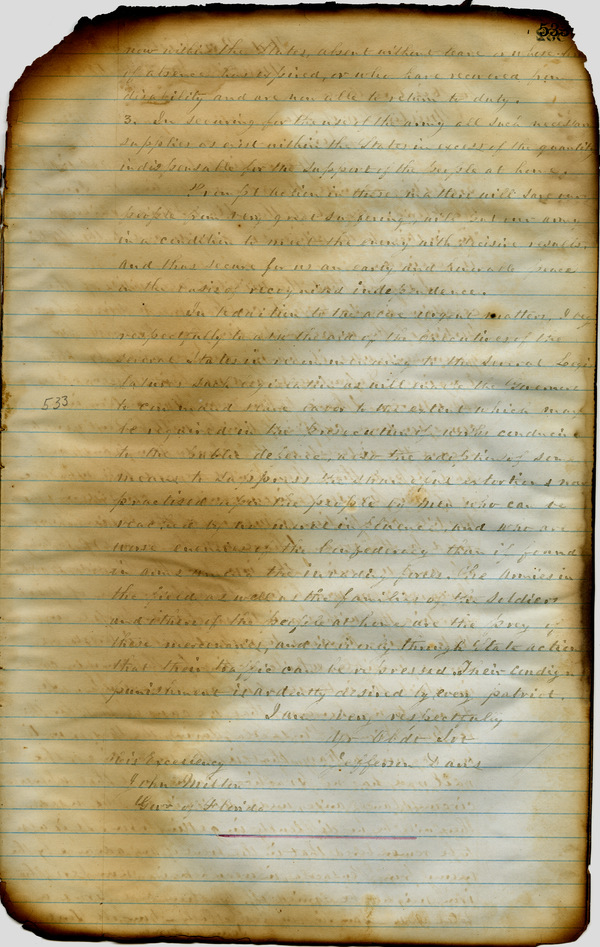 533
now within the States, absent without leave or whose
of absence has expired, or who have recovered from
disability and are now able to return to duty.
3. In securing for the use of the army all such necessary
supplies as exist within the States in excess of the quantity
indispensable for the support of the people at home.
Prompt action in these matters will save our
people from very great suffering, will put our army
in a condition to meet the enemy with decisive results,
and thus secure for us an early and honorable peace
on the basis of recognized independence.
In addition to the above urgent matters, I beg
respectfully to ask the aid of the executives of the
several States in recommending to the several Legis
latures such legislation as will enable the Government
533
to command slave labor to the extent which may
be required in the prosecution of works conducive
to the public defence, also the adoption of some
means to suppress the shameful extortions now
practised upon the people by men who can be
reached by no moral influence, and who are
worse enemies of the Confederacy than if found
in arms among the invading forces. The Armies in
the field as well as the families of the soldiers
and others of the people at home are the prey of
these mercenaries, and it is only through State action
that their traffic can be repressed. Their condign
punishment is ardently desired by every patriot.
I am very respectfully
Yr Obdt Svt
Jefferson Davis
His Excellency
John Milton
Gov. of Florida